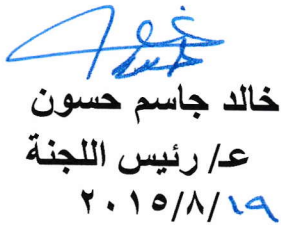 خالد جاسم حسون
عـ/ رئيس اللجنة
٢٠١٥/٨/١٩